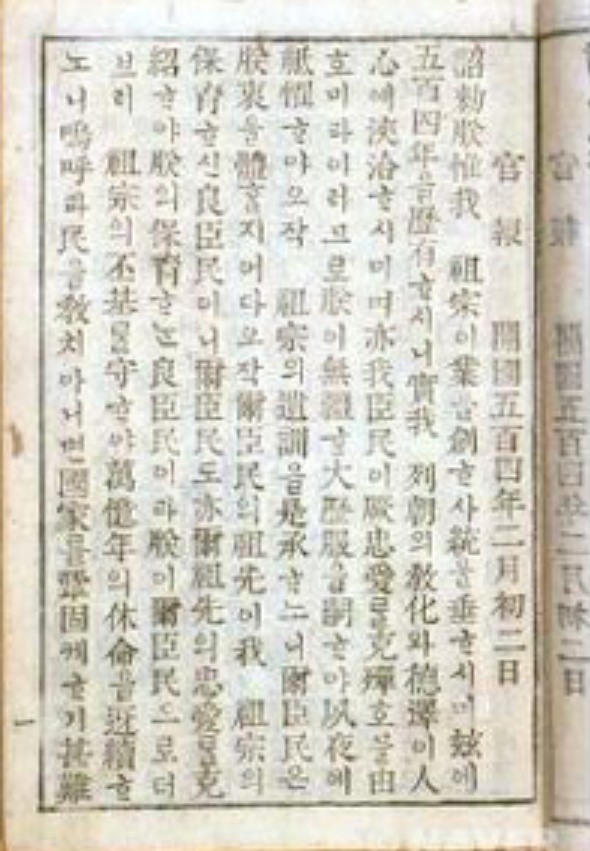 官報 開國五百四年二月初二日
詔勅朕惟我 祖宗이業을創ᄒᆞ사統을垂ᄒᆞ시미玆에
五百四年을歷有ᄒᆞ시니實我 列朝의敎化와德澤이人
心에浹洽ᄒᆞ시미며亦我臣民이厥忠愛ᄅᆞᆯ克殫호믈由
호미라이러므로朕이無疆ᄒᆞᆫ大歷服을嗣ᄒᆞ야夙夜에
祗懼ᄒᆞ야오작 祖宗의遺訓을是承ᄒᆞ노니爾臣民은
朕衷을體ᄒᆞᆯ지어다오작爾臣民의祖先이我 祖宗의
保育ᄒᆞ신良臣民이니爾臣民도亦爾祖先의忠愛ᄅᆞᆯ克
紹ᄒᆞ야朕의保育ᄒᆞᄂᆞᆫ良臣民이라朕이爾臣民으로더
브러 祖宗의丕基ᄅᆞᆯ守ᄒᆞ야萬億年의休命을迓續ᄒᆞ
노니嗚呼라民을敎치아니면國家ᄅᆞᆯ鞏固케ᄒᆞ기甚難
一
NAVER